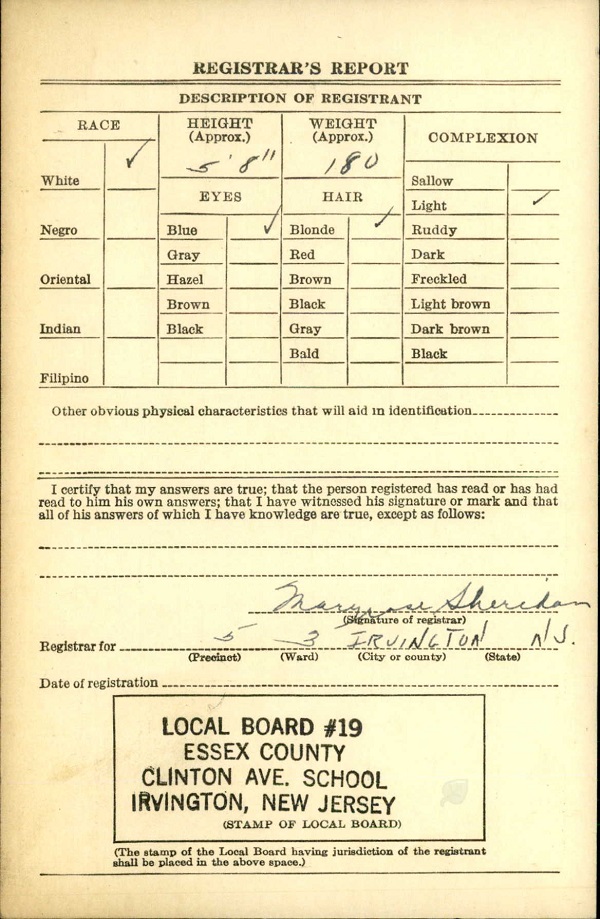 REGISTRAR'S REPORT
DESCRIPTION OF REGISTRANT
RACE
HEIGHT
(Approx.)
WEIGHT
(Approx.)
COMPLEXION
White ✓
5' 8"
180
Sallow
EYES
HAIR
Light ✓
Negro
Blue ✓
Blonde ✓
Ruddy
Gray
Red
Dark
Oriental
Hazel
Brown
Freckled
Brown
Black
Light brown
Indian
Black
Gray
Dark brown
Bald
Black
Filipino
Other obvious physical characteristics that will aid in identification
I certify that my answers are true; that the person registered has read or has had
read to him his own answers; that I have witnessed his signature or mark and that
all of his answers of which I have knowledge are true, except as follows:
Maryrose Sheridan
(Signature of registrar)
Registrar for 5 3 IRVINGTON N.J.
(Precinct) (Ward) (City or county) (State)
Date of registration
LOCAL BOARD #19
ESSEX COUNTY
CLINTON AVE. SCHOOL
IRVINGTON, NEW JERSEY
(STAMP OF LOCAL BOARD)
(The stamp of the Local Board having jurisdiction of the registrant
shall be placed in the above space.)